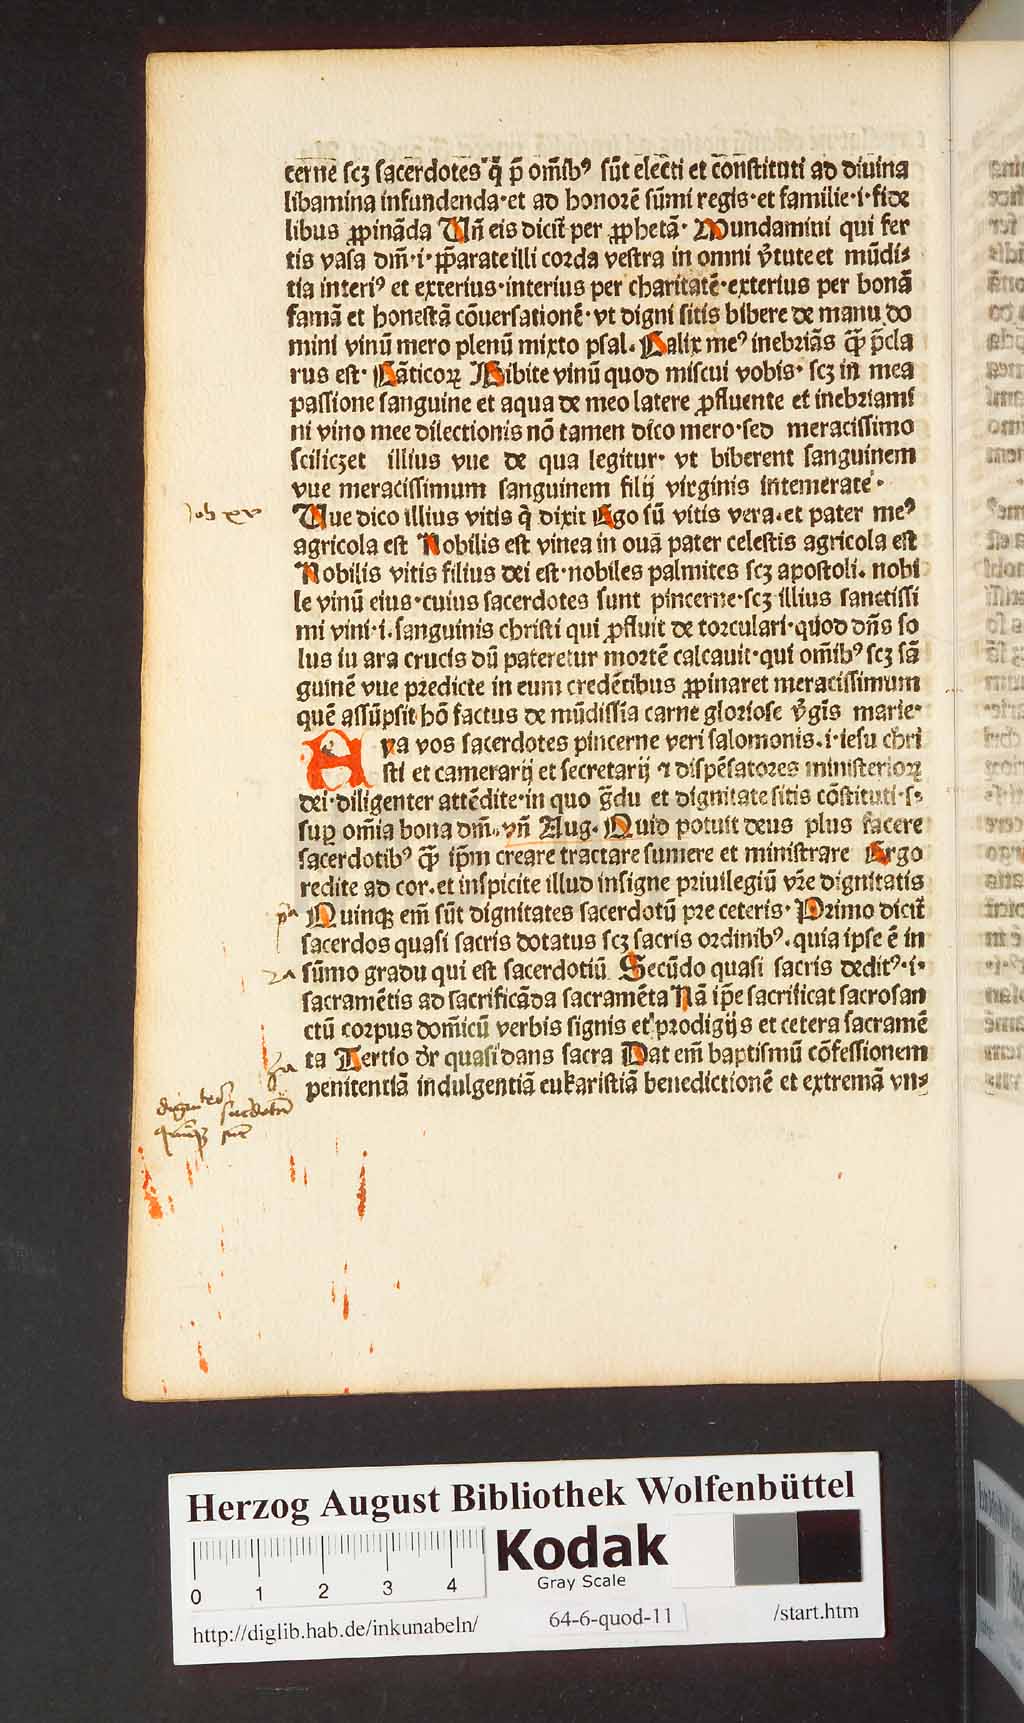 cerne scꝫ sacerdotes q̃ p̃ om̄ibꝰ sūt electi et constituti ad diuina
libamina infundenda·et ad honorē sūmi regis·et familie·i·fide
libus ꝓpinãda Vñ eis dicit̃ per ꝓphetã· Mundamini qui fer
tis vasa dm̄·i·p̄parate illi corda vestra in omni v̓tute et mūdi⸗
tia interiꝰ et exterius·interius per charitatē·exterius per bonã
famã et honestã cōuersationē·vt digni sitis bibere de manu do
mini vinū mero plenū mixto psal. Calix meꝰ inebriãs q̃ꝫ p̄cla
rus est· Cãticoꝝ Bibite vinū quod miscui vobis· scꝫ in mea
passione sanguine et aqua de meo latere ꝓfluente et inebriami
ni vino mee dilectionis nō tamen dico mero·sed meracissimo
scilicꝫet illius vue de qua legitur· vt biberent sanguinem
vue meracissimum sanguinem filij virginis intemerate·
Joh xv
Vue dico illius vitis q̃ dixit Ego sū vitis vera.et pater meꝰ
agricola est Nobilis est vinea in quã pater celestis agricola est
Nobilis vitis filius dei est·nobiles palmites scꝫ apostoli. nobi
le vinū eius·cuius sacerdotes sunt pincerne·scꝫ illius sanctissi
mi vini·i.sanguinis christi qui ꝓfluit de torculari·quod dn̄s so
lus iu ara crucis dū pateretur mortē calcauit·qui om̄ibꝰ scꝫ sã
guinē vue predicte in eum credētibus ꝓpinaret meracissimum
quē assūpsit hō factus de mūdissīa carne gloriose v̓gīs marie·
Eya vos sacerdotes pincerne veri salomonis.i·iesu chri
sti et camerarij et secretarij ⁊ dispēsatores ministerioꝝ
dei·diligenter attēdite·in quo g̃du et dignitate sitis cōstituti·s⸗
suꝑ om̄ia bona dm̄.vñ Aug. Quid potuit deus plus facere
sacerdotibꝰ q̃ꝫ ip̄m creare tractare sumere et ministrare Ergo
redite ad cor.et inspicite illud insigne priuilegiū vr̄e dignitatis
pᵃ
Quinqꝫ em̄ sūt dignitates sacerdotū pre ceteris· Primo dicit̃
sacerdos quasi sacris dotatus scꝫ sacris ordinibꝰ.quia ipse ē in
2ᵃ
sūmo gradu qui est sacerdotiū Secūdo quasi sacris deditꝰ·i·
sacramētis ad sacrificãda sacramēta Nã ip̄e sacrificat sacrosan
ctū corpus domīcū verbis signis et prodigijs et cetera sacramē
3ᵃ
ta Tertio dr̄ quasi dans sacra Dat em̄ baptismū cōfessionem
penitentiã indulgentiã eukaristiã benedictionē et extremã vn⸗
dignitates
sacerdotū
quinqꝫ sūt
Herzog August Bibliothek Wolfenbüttel
0 1 2 3 4
Kodak
Gray Scale
http://diglib.hab.de/inkunabeln/ 64-6-quod-11 /start.htm